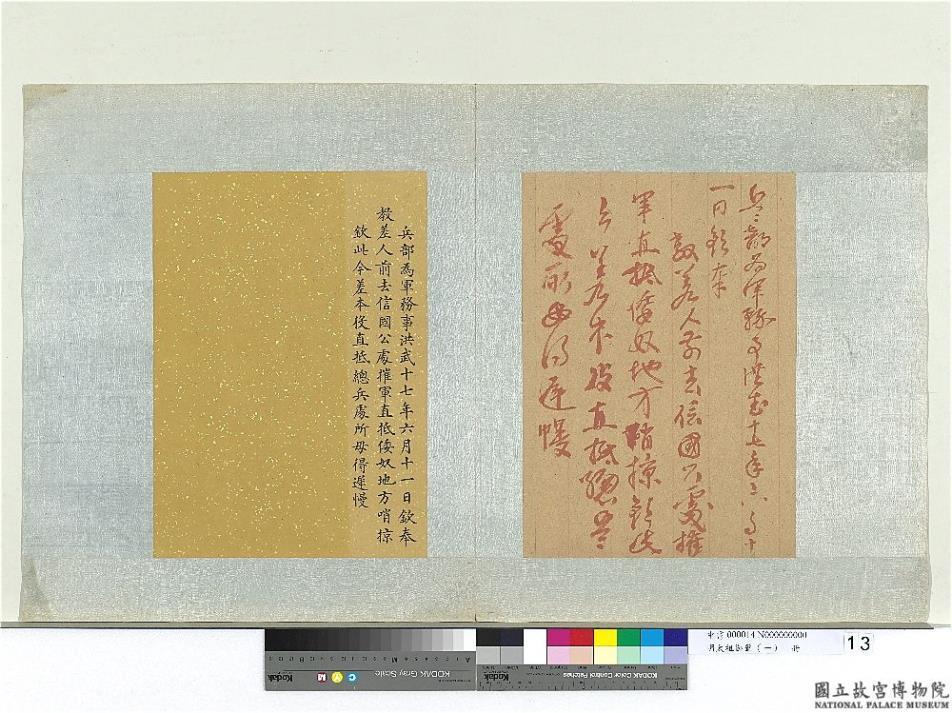 兵部為軍務事洪武十七年六月十
一日欽奉
教差人前去信國公處摧
軍直抵倭奴地方哨掠欽此
今差本役直抵總兵
處所毋得遲慢
兵部為軍務事洪武十七年六月十一日欽奉
教差人前去信國公處摧軍直抵倭奴地方哨掠
欽此今差本役直抵總兵處所毋得遲慢
KODAK Gray Scale
Kodak
C Y M
KODAK Color Control Patches
Kodak
000014 N000000000
明太祖御筆(一) 冊
13
國立故宮博物院
NATIONAL PALACE MUSEUM